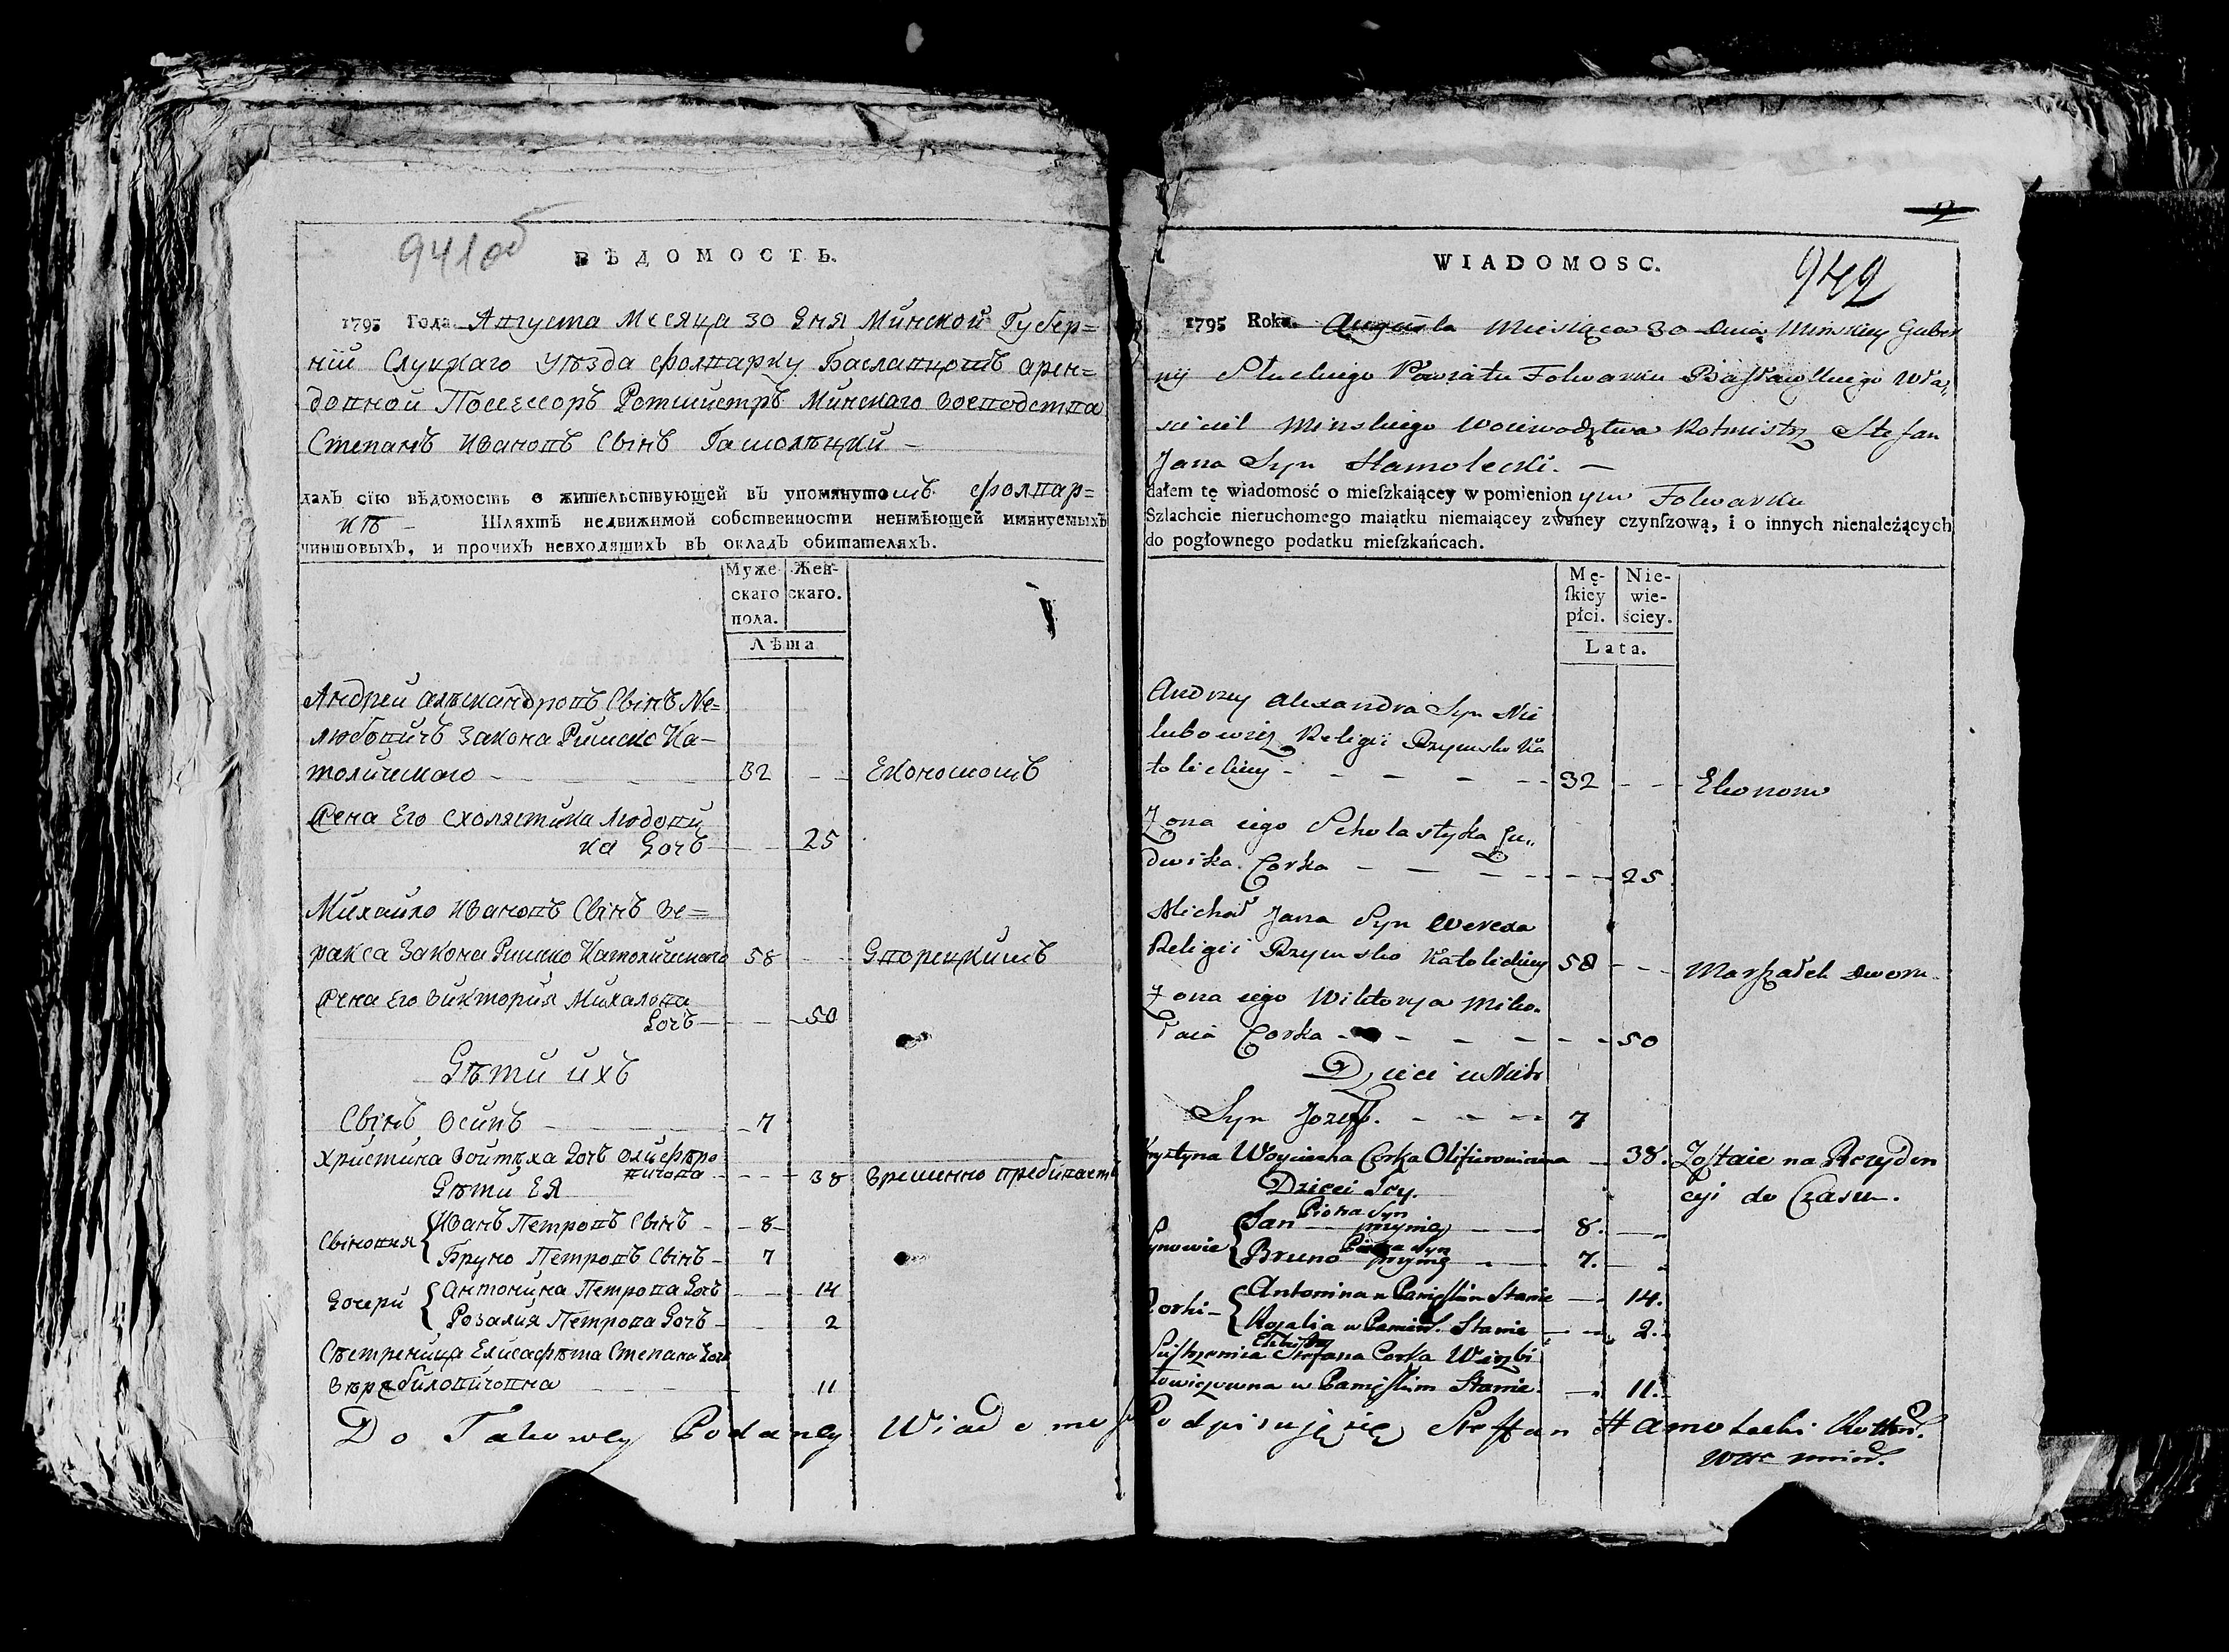 941об
ВѢДОМОСТЬ.
1795 Года Августа Месяца 30 Дня Минской Губер=
нїи Слуцкаго Уѣзда фолварку Баславцовъ арен=
довной Посессоръ Ротмистръ Минскаго Воеводства
Степанъ Ивановъ Сынъ Гамолѣцкий
далъ сїю вѣдомость о жительствующей въ упомянутомъ фолвар=
кѣ Шляхтѣ недвижимой собственности неимѣющей имянуемыхъ
чиншовыхъ, и прочихъ невходящихъ въ окладъ обитателяхъ.
Муже- Жен-
скаго скаго.
пола.
Лѣта
Андрей Алѣкандровъ Сынъ Не=
любовичъ Закона Римско Ка-
толическаго 32 Економомъ
Жена Его Схолястика Людови
ка Дочь 25
Михайло Ивановъ Сынъ Ве=
ракса Закона Римско Католическаго 58 Дворецкимъ
Жена Его Виктория Михалова
Дочь 50
Дѣти ихъ
Сынъ Осипъ 7
Христина Войтѣха Дочь Олифѣро
вичова 38 Временно пребываетъ
Дѣти Ея
Сыновья Иванъ Петровъ Сынъ 8
Бруно Петровъ Сынъ 7
Дочери Антонина Петрова Дочь 14
Розалия Петрова Дочь 2
Сѣстреница Елисафѣта Степана Дочь
Вѣрзбиловичовна 11
Do Takowey Podaney Wiadomości Podpisuję się Steffan Hamolecki Rottm.
Wttwa minś.
942
WIADOMOSC.
1795 Roku Augusta Miesiąca 30 Dnia Minskiey Guber
nij Słuckiego Powiatu Folwarku Basławskiego Wła,
sciciel Minskiego Woiewodztwa Rotmistrz Stefan
Jana Syn Hamolecki.
dałem tę wiadomość o mieſzkaiącey w pomienionym Folwarku
Szlachcie nieruchomego maiątku niemaiącey zwaney czynſzową, i o innych nienależących
do pogłownego podatku mieſzkańcach.
Mę- Nie-
ſkiey wie-
płci. ściey.
Lata.
Andrzey Alexandra Syn Nie
lubowicz Religii Rzymsko Ka
tolickiey 32 Ekonom
Zona iego Scholastyka Lu,,
dwika Corka 25
Michał Jana Syn Werexa
Religii Rzymsko Katolickiey 58 Marszałek Dworu
Zona iego Wiktorya Miko-
łaia Corka 50
Dzieci u Nich
Syn Jozeff. 7
Krystyna Woyciecha Corka Olifierowiczowa 38. Zostaie na Rezyden
Dzieci Jey. cyi do Czasu.
Synowie Jan Piotra Syn 8.
Bruno Piotra Syn 7.
Corki Antonina w Panieńskim Stanie 14.
Rozalia w Panieńs. Stanie 2.
Siestrzenica Elżbieta Stefana Corka Wierzbi
łowiczowna w Panieńskim Stanie. 11.